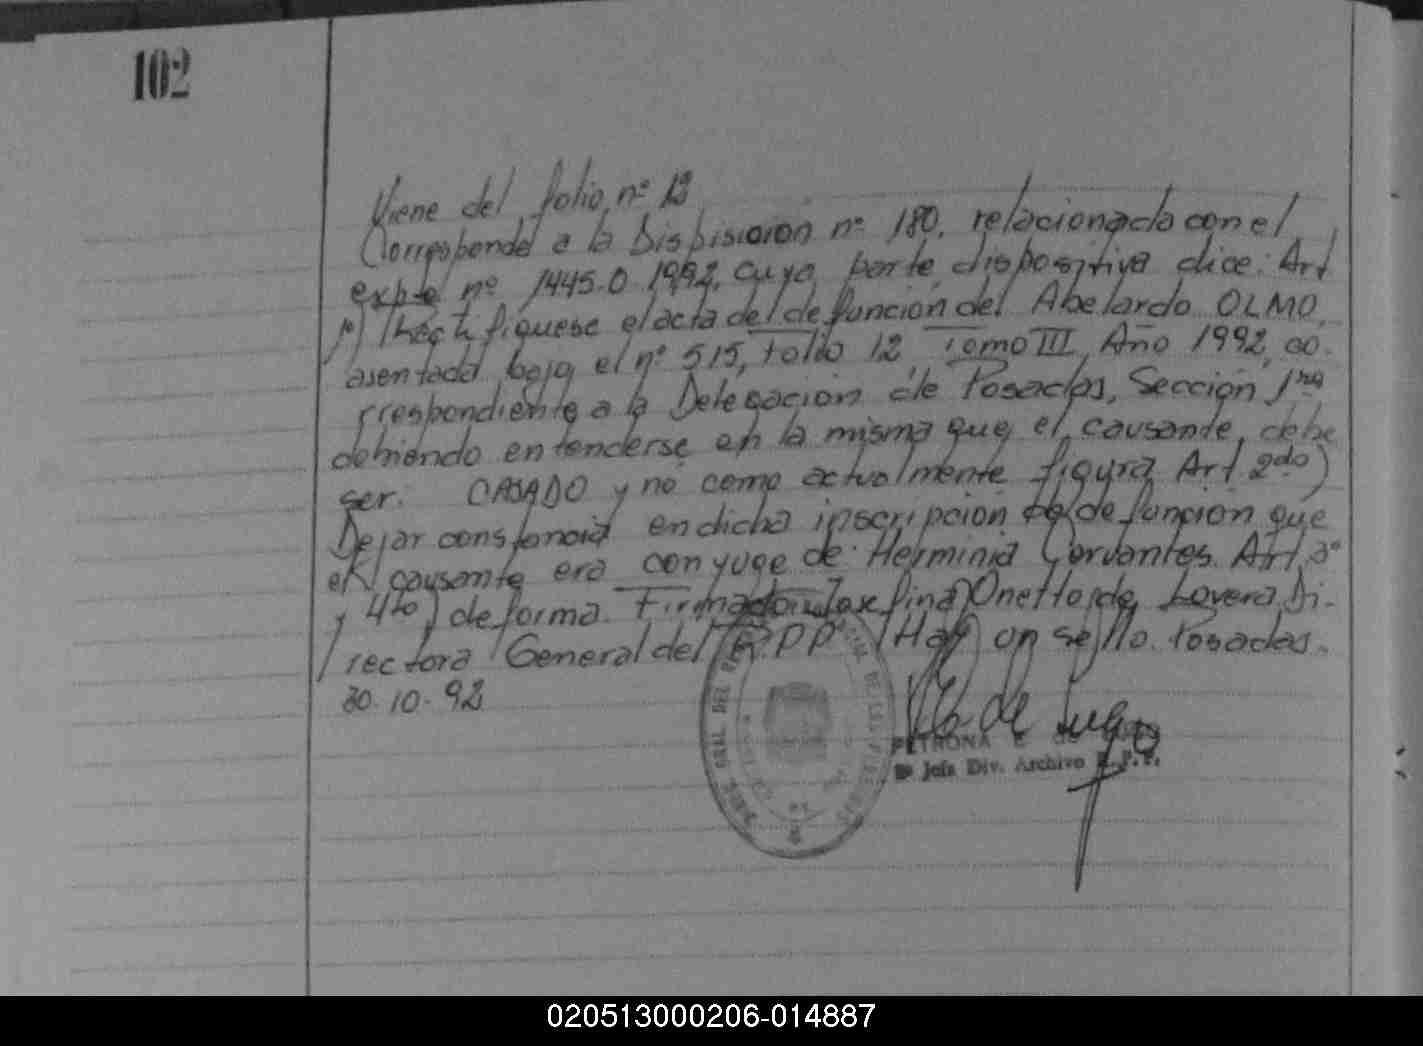 102
Viene del folio nº 12
Corresponde a la Disposicion nº 180, relacionada con el
expte nº 1445-O-1992, cuya parte dispositiva dice: Art
1º) Rectifiquese el acta de defunción del Abelardo OLMO,
asentada bajo el nº 515, folio 12, Tomo III, Año 1992, co-
rrespondiente a la Delegación de Posadas, Sección 1ra
debiendo entenderse en la misma que el causante, debe
ser: CASADO y no como actualmente figura Art 2do)
Dejar constancia en dicha inscripción de defunción que
el causante era conyuge de: Herminia Cervantes. Art 3º
y 4to) de forma. Firmado: Josefina Onetto de Lovera Di-
rectora General del R.P.P. Hay un sello. Posadas.
30-10-92
PETRONA E. DE
Jefa Div. Archivo R.P.P.
020513000206-014887